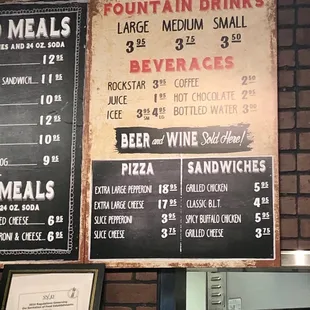 O MEALS
ES AND 24 OZ. SODA
12 95
SANDWICH 11 95
10 95
12 95
10 95
OG 9 95
MEALS
ED CHEESE 6 95
RONI & CHEESE 6 95
FOUNTAIN DRINKS
LARGE MEDIUM SMALL
3 95 3 75 3 50
BEVERAGES
ROCKSTAR 3 95
JUICE 1 95
ICEE 3 95 4 95
COFFEE 2 00
HOT CHOCOLATE 2 95
BOTTLED WATER 3 00
BEER and WINE Sold Here!
PIZZA
EXTRA LARGE PEPPERONI 18 95
EXTRA LARGE CHEESE 17 95
SLICE PEPPERONI 3 95
SLICE CHEESE 3 75
SANDWICHES
GRILLED CHICKEN 5 95
CLASSIC B.L.T. 4 95
SPICY BUFFALO CHICKEN 5 95
GRILLED CHEESE 3 75